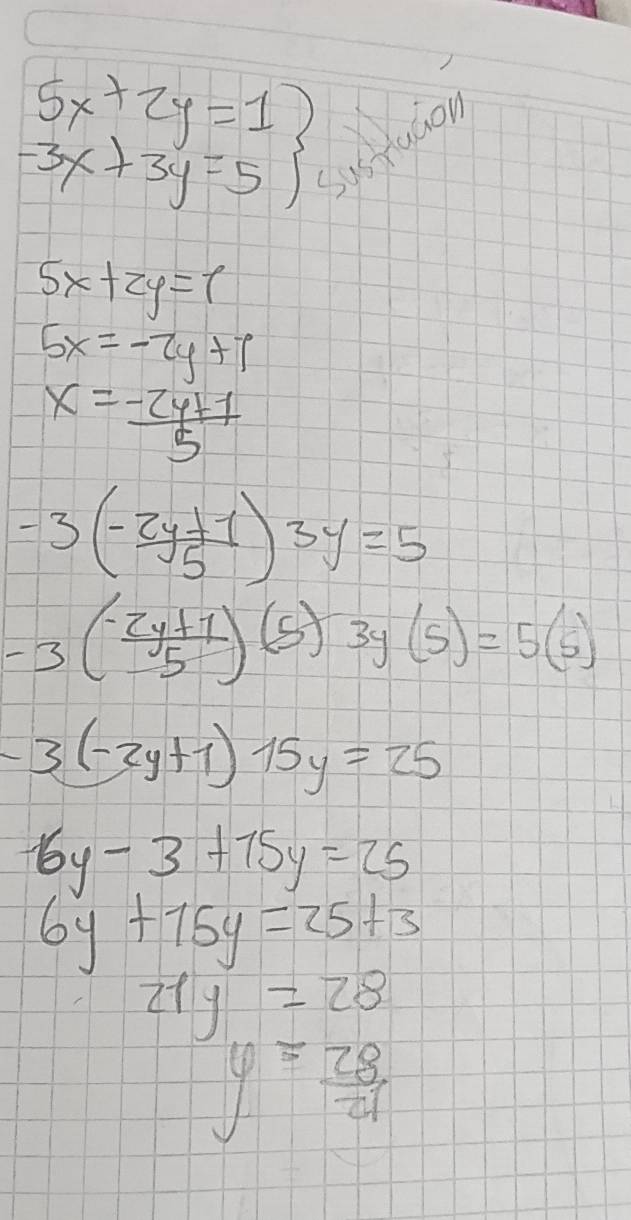 5x+2y=1
-3x+3y=5 } sustitución
5x+2y=1
5x=-2y+1
x=-2y+1/5
-3(-2y+1/5)3y=5
-3(-2y+1/5)(5) 3y(5)=5(5)
-3(-2y+1) 15y=25
6y-3+15y=25
6y+15y=25+3
21y=28
y=28/21